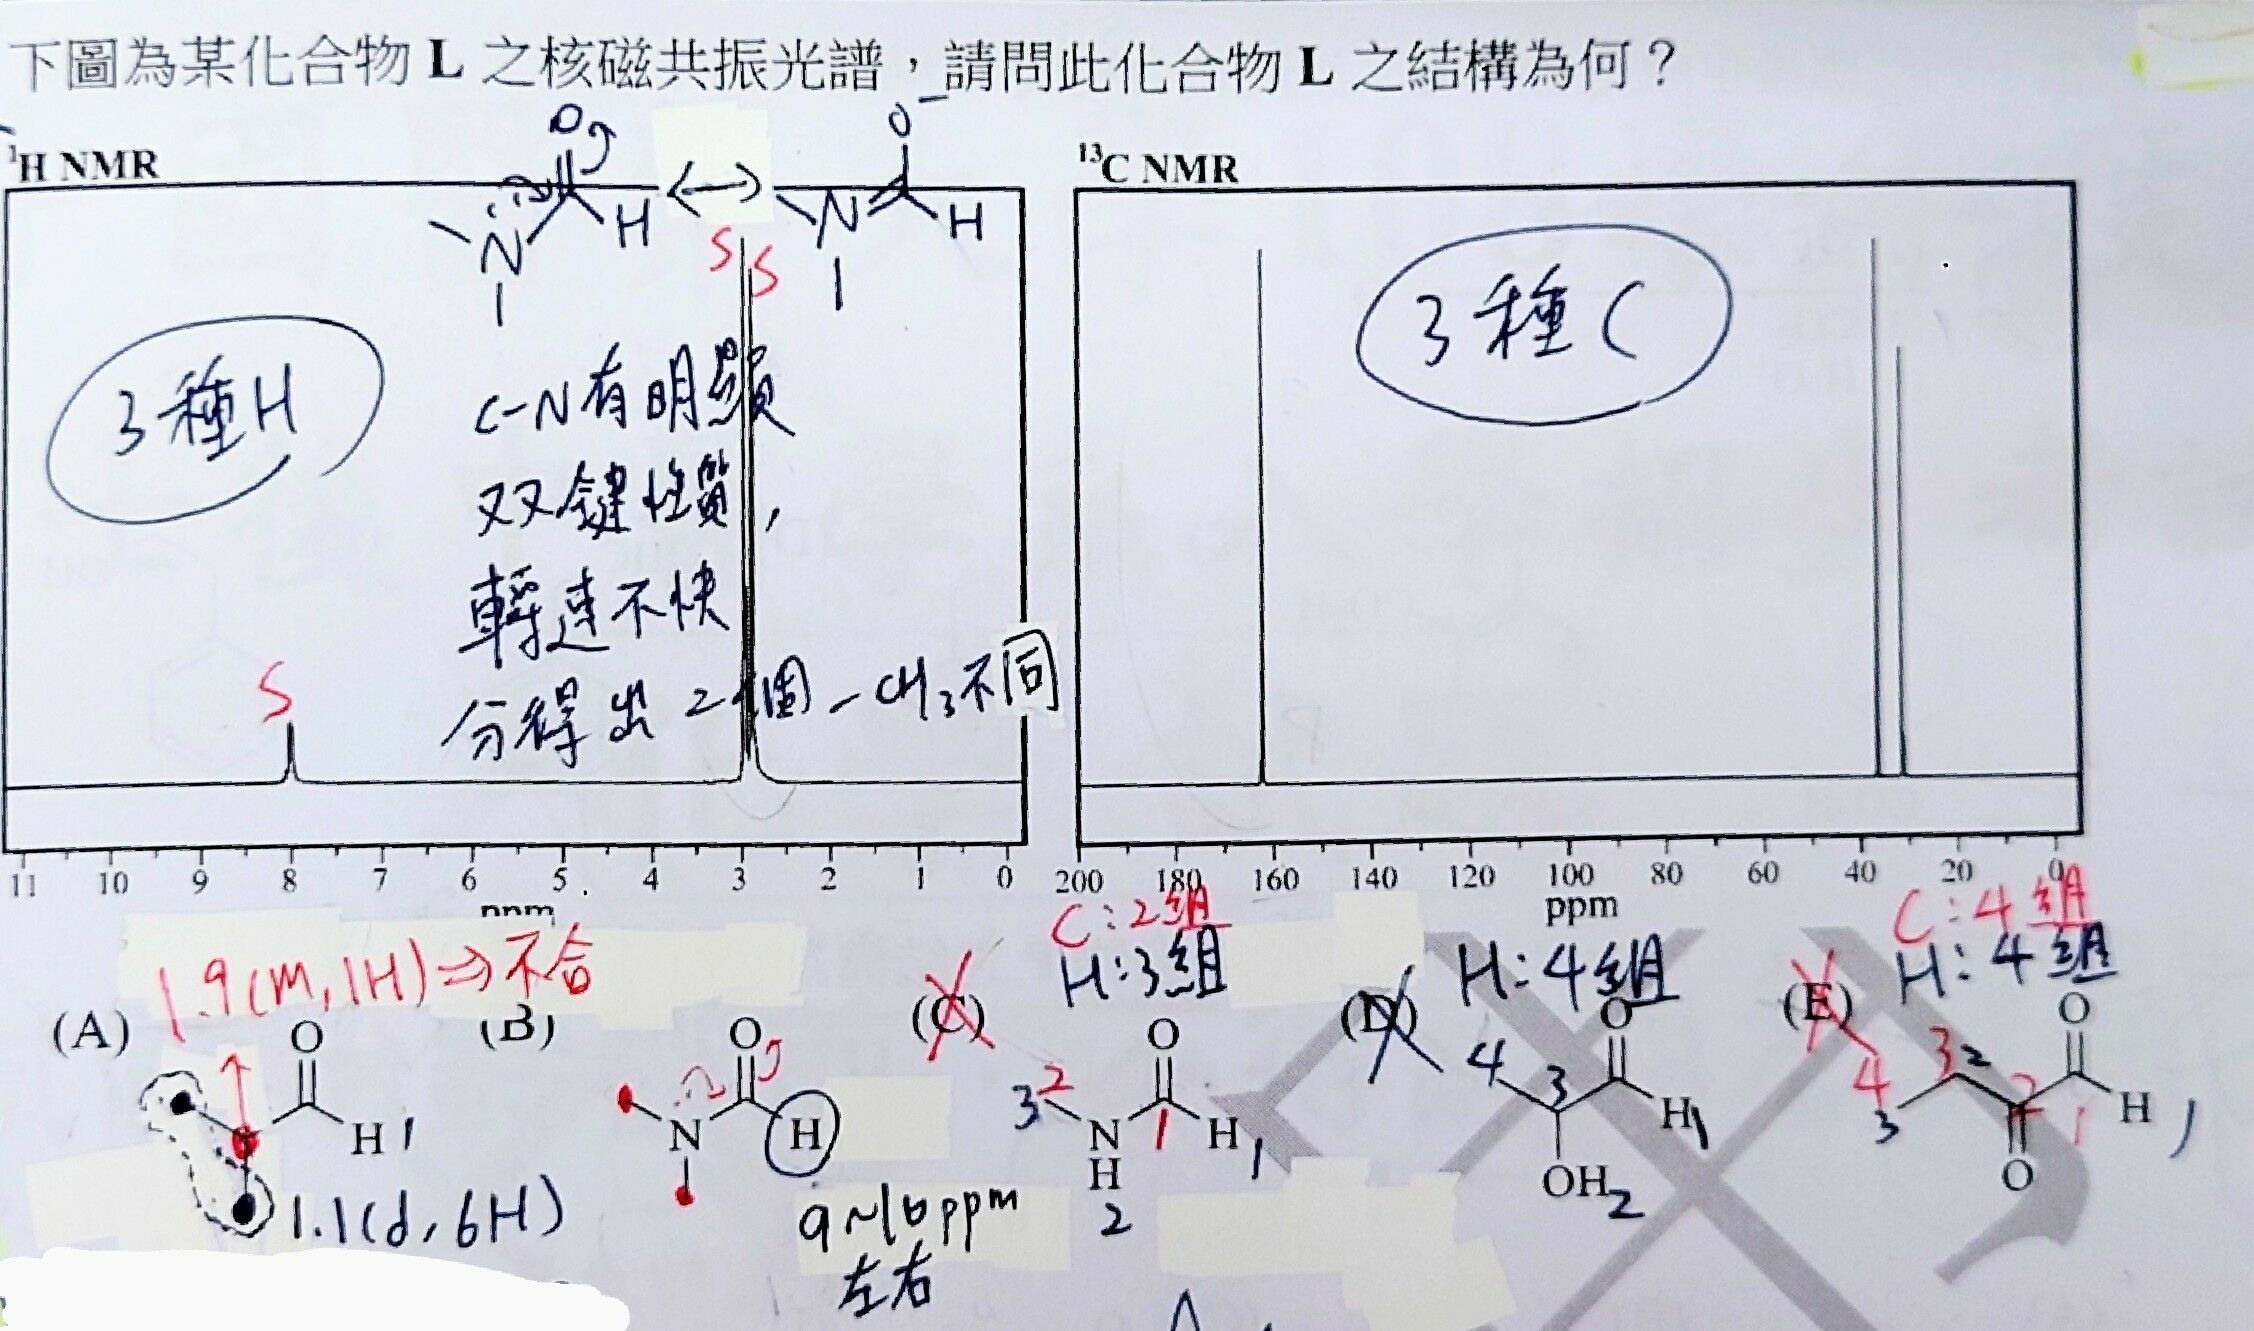 下圖為某化合物 L 之核磁共振光譜，請問此化合物 L 之結構為何？
¹H NMR
O
N
H
O⁻
N
H
S
S
3種H
C-N有明顯
双鍵性質，
轉速不快
分得出2個-CH₃不同
S
11 10 9 8 7 6 5 4 3 2 1 0
ppm
¹³C NMR
3種C
200 180 160 140 120 100 80 60 40 20 0
ppm
1.9(m,1H)⇒不合
(A)
O
H 1
1.1(d,6H)
(B)
O
N
H
9~10ppm
左右
C:2組
H:3組
(C)
O
3
2
N
H
2
1
H 1
H:4組
(D)
O
4
3
H 1
OH 2
C:4組
H:4組
(E)
O
3
2
4
3
2
1
H 1
O